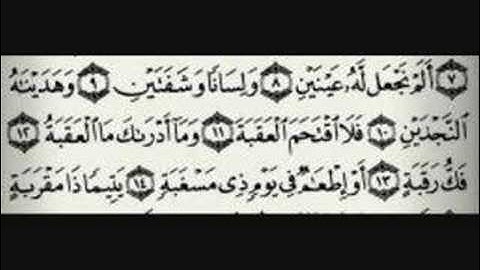 ٧ أَلَمْ نَجْعَل لَّهُۥ عَيْنَيْنِ ٨ وَلِسَانًا وَشَفَتَيْنِ ٩ وَهَدَيْنَٰهُ
ٱلنَّجْدَيْنِ ١٠ فَلَا ٱقْتَحَمَ ٱلْعَقَبَةَ ١١ وَمَآ أَدْرَىٰكَ مَا ٱلْعَقَبَةُ ١٢
فَكُّ رَقَبَةٍ ١٣ أَوْ إِطْعَٰمٌ فِى يَوْمٍ ذِى مَسْغَبَةٍ ١٤ يَتِيمًا ذَا مَقْرَبَةٍ